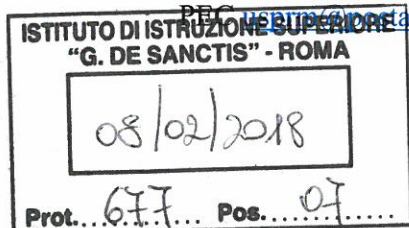 PEC usprm@posta
ISTITUTO DI ISTRUZIONE SUPERIORE
"G. DE SANCTIS" - ROMA
08/02/2018
Prot....677... Pos....07......